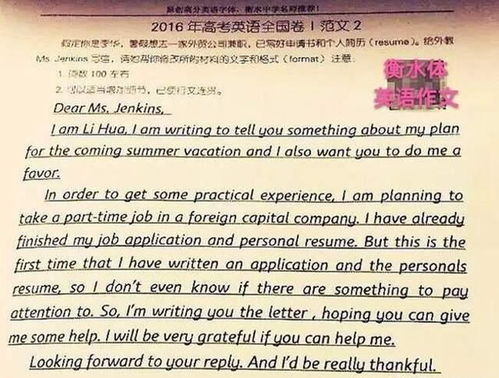 原创高分英语字体,衡水中学名师推荐!
2016年高考英语全国卷 I 范文2
假定你是李华,暑假想去一家外贸公司兼职,已写好申请书和个人简历(resume)。给外教
Ms. Jenkins 写信,请她帮你修改所附材料的文字和格式(format)注意:
1. 词数100左右
2. 可以适当增加细节,已使行文连贯。
衡水体
英语作文
Dear Ms. Jenkins,
I am Li Hua, I am writing to tell you something about my plan
for the coming summer vacation and I also want you to do me a
favor.
In order to get some practical experience, I am planning to
take a part-time job in a foreign capital company. I have already
finished my job application and personal resume. But this is the
first time that I have written an application and the personals
resume, so I don't even know if there are something to pay
attention to. So, I'm writing you the letter , hoping you can give
me some help. I will be very grateful if you can help me.
Looking forward to your reply. And I'd be really thankful.